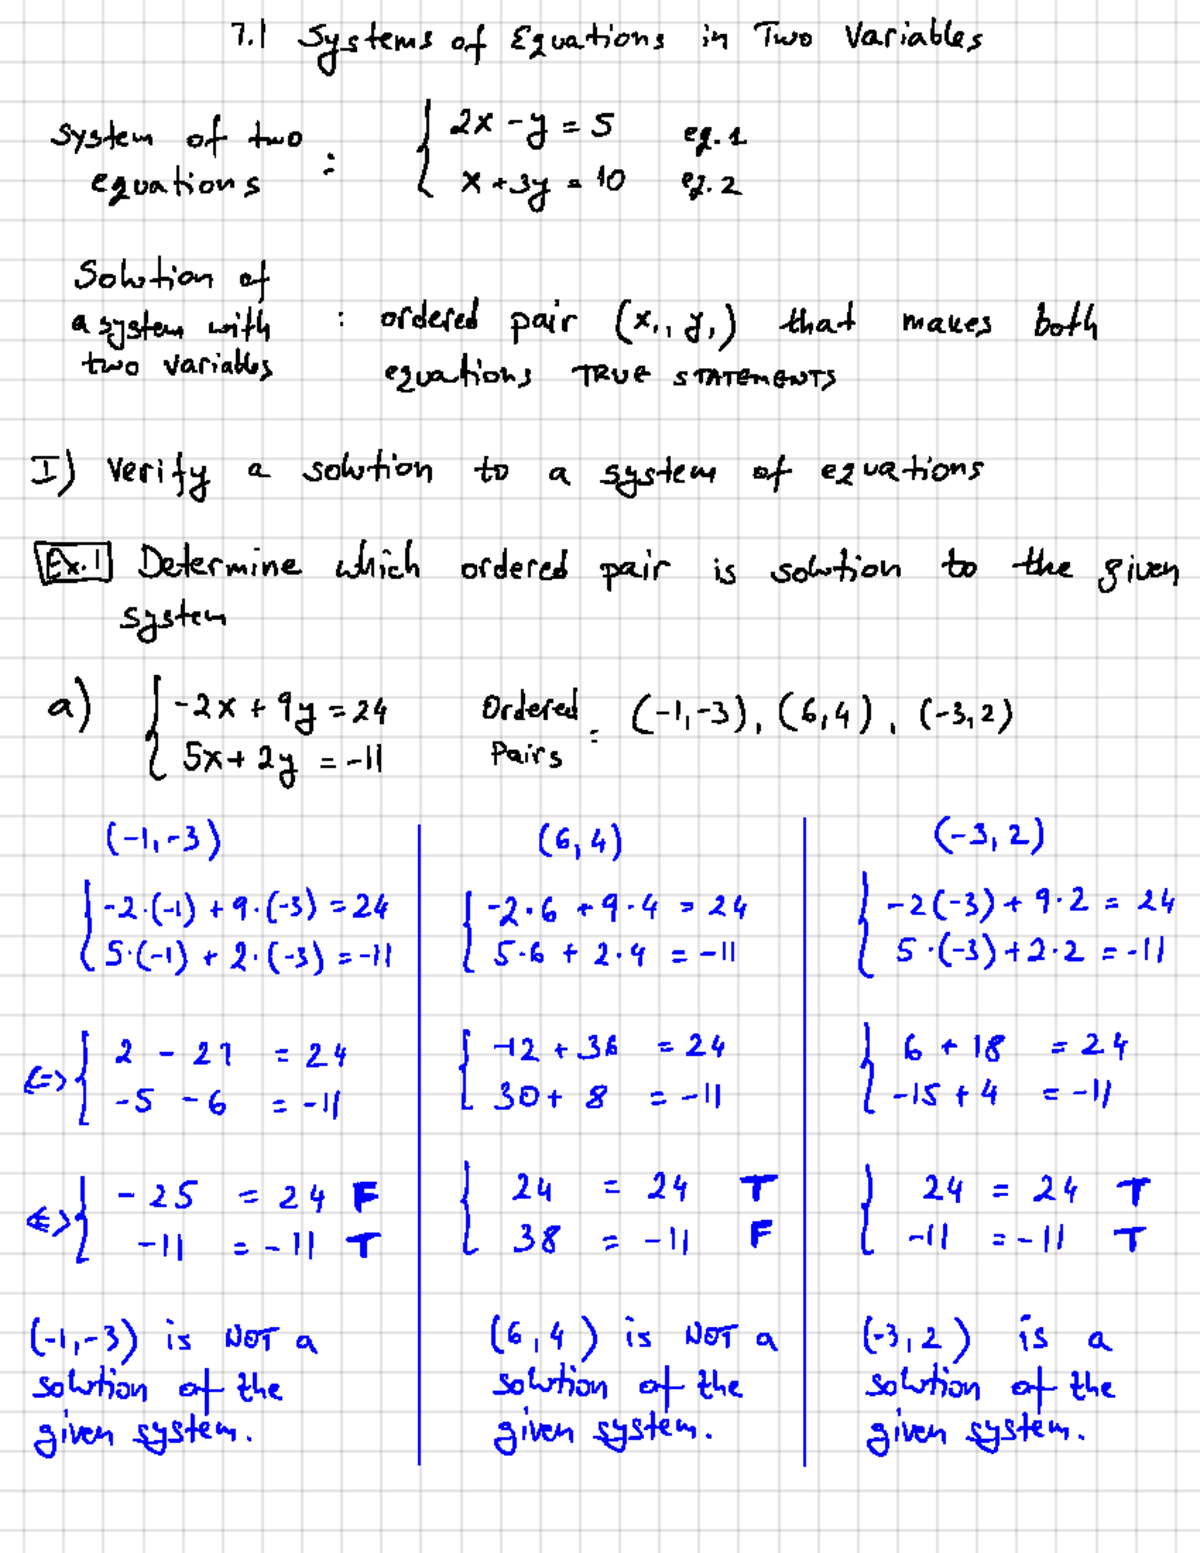 7.1 Systems of Equations in Two Variables
System of two equations : { 2x - y = 5 eq. 1
x + 3y = 10 eq. 2
Solution of a system with two variables : ordered pair (x₁, y₁) that makes both
equations TRUE STATEMENTS
I) Verify a solution to a system of equations
Ex. 1 Determine which ordered pair is solution to the given
system
a) { -2x + 9y = 24
5x + 2y = -11
Ordered Pairs : (-1,-3), (6,4), (-3,2)
(-1,-3)
{ -2·(-1) + 9·(-3) = 24
5·(-1) + 2·(-3) = -11
<=> { 2 - 27 = 24
-5 - 6 = -11
<=> { -25 = 24 F
-11 = -11 T
(-1,-3) is NOT a
solution of the
given system.
(6,4)
{ -2·6 + 9·4 = 24
5·6 + 2·4 = -11
{ -12 + 36 = 24
30 + 8 = -11
{ 24 = 24 T
38 = -11 F
(6,4) is NOT a
solution of the
given system.
(-3,2)
{ -2(-3) + 9·2 = 24
5·(-3) + 2·2 = -11
{ 6 + 18 = 24
-15 + 4 = -11
{ 24 = 24 T
-11 = -11 T
(-3,2) is a
solution of the
given system.